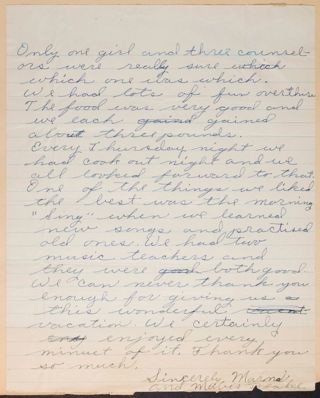 Only one girl and three counsel-
ors were really sure which
which one was which.
We had lots of fun over there
The food was very good and
we each gaind gained
about three pounds.
Every Thursday night we
had cook out night and we
all looked forward to that.
One of the things we liked
the best was the morning
"Sing" when we learned
new songs and practised
old ones. We had two
music teachers and
they were both good
We can never thank you
enough for giving us a
this wonderful
vacation. We certainly
enjoyed every
minuet of it. Thank you
so much.
Sincerely,
and